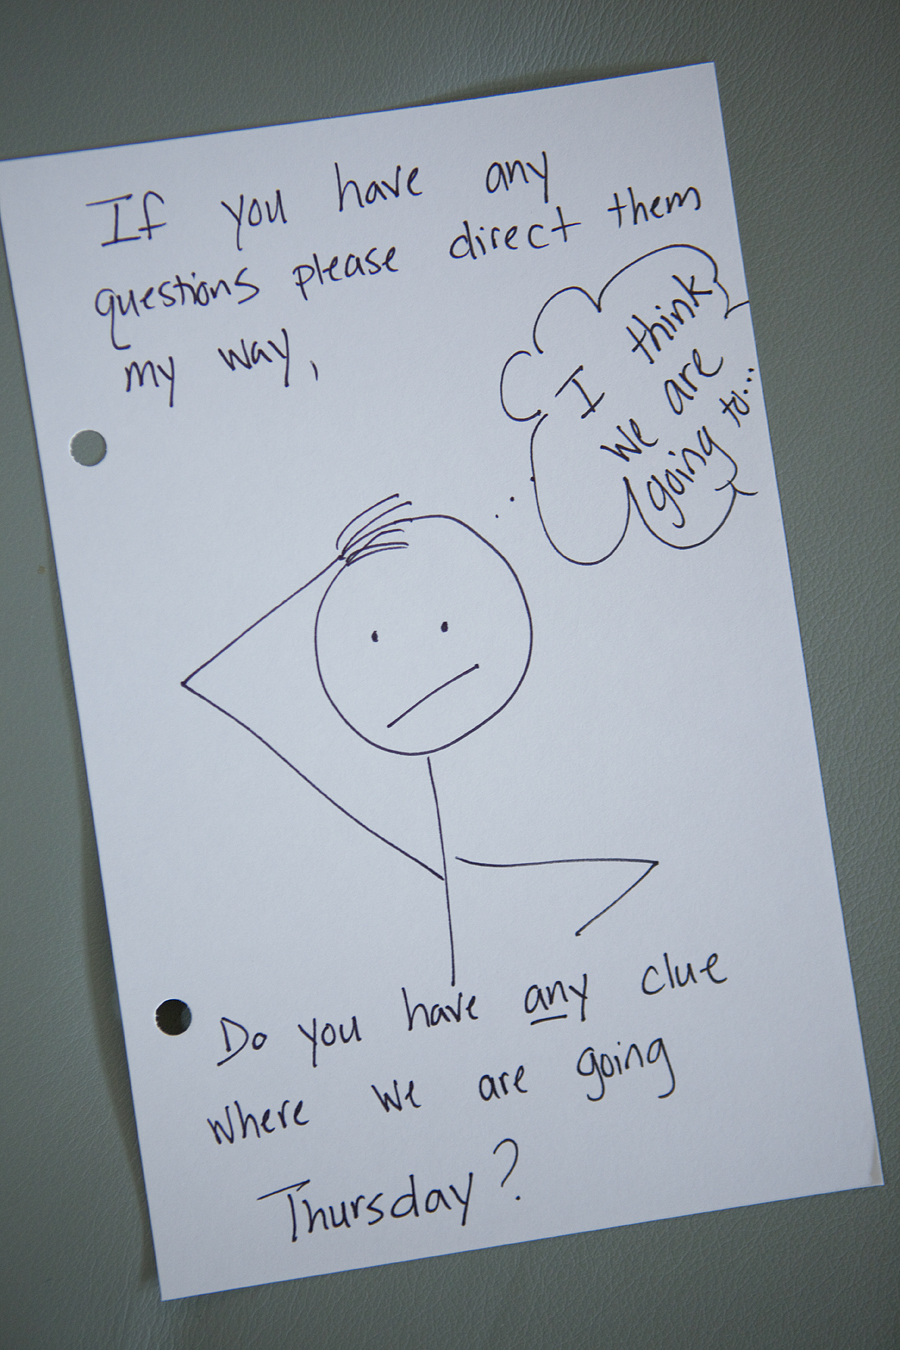 If you have any
questions please direct them
my way,
I think
we are
going to...
Do you have any clue
where we are going
Thursday?